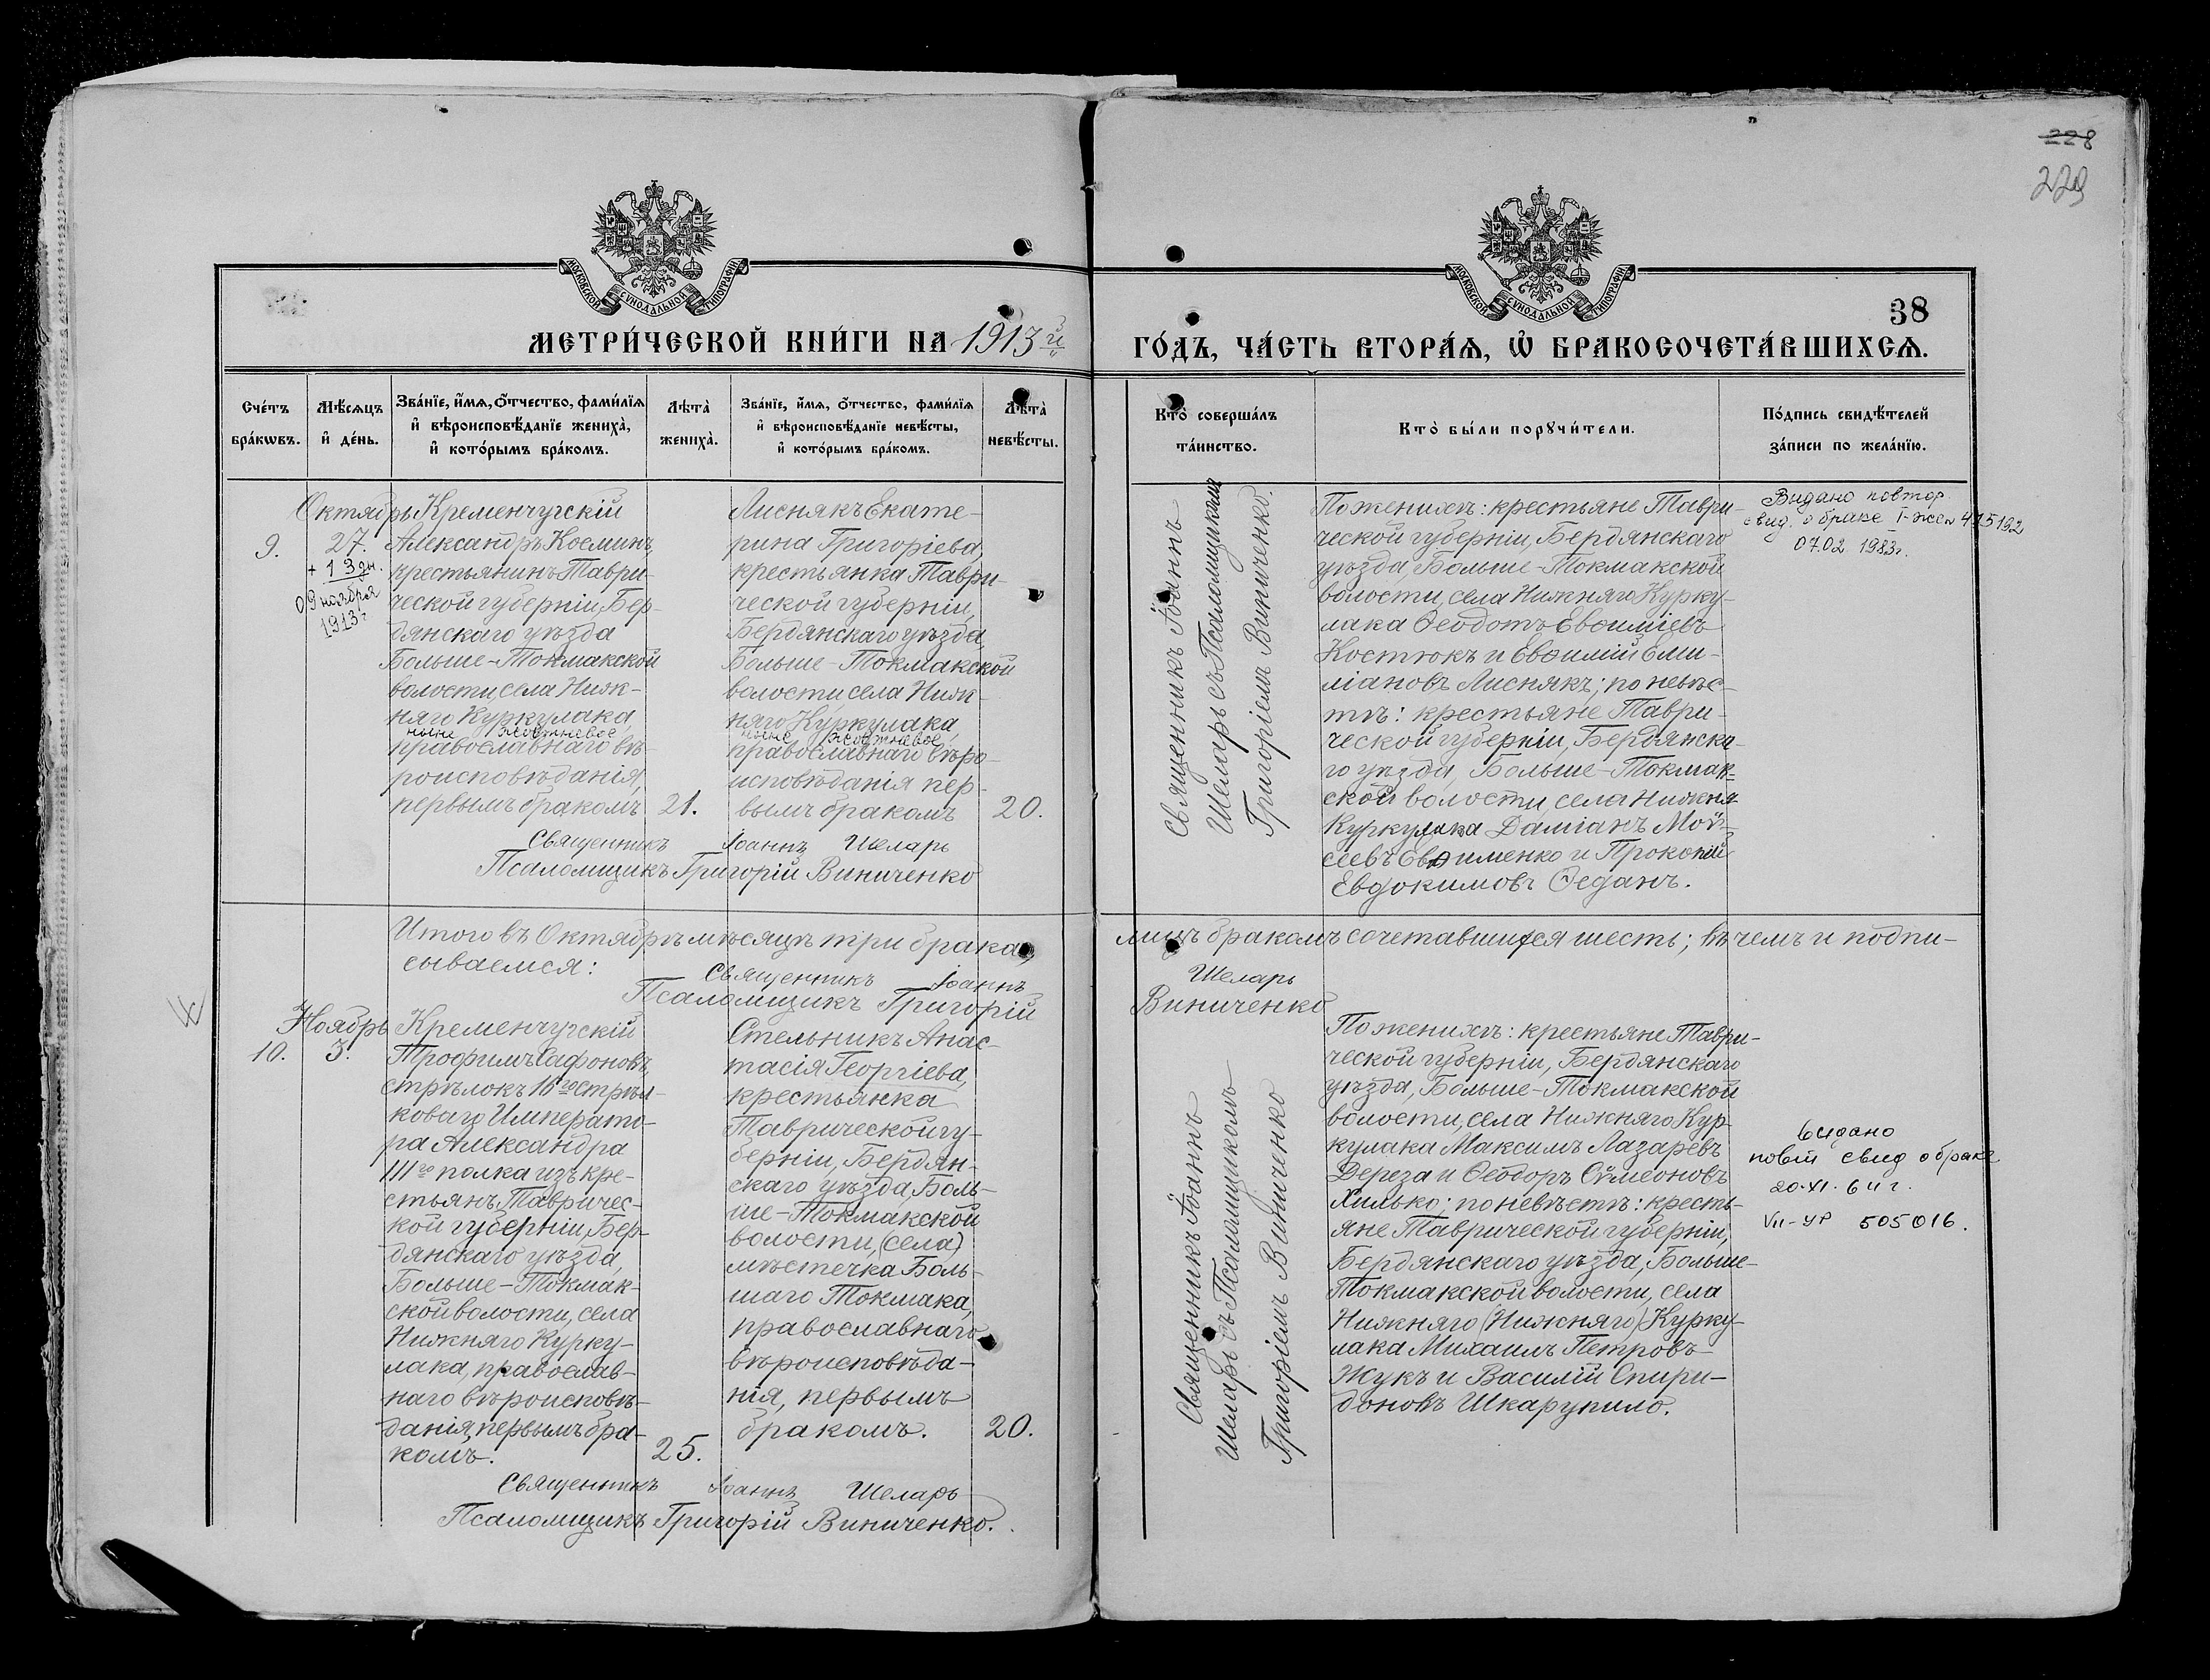 228
229
МОСКОВСКОЙ СѴНОДАЛЬНОЙ ТИПОГРАФІИ
МОСКОВСКОЙ СѴНОДАЛЬНОЙ ТИПОГРАФІИ
38
МЕТРИ́ЧЕСКОЙ КНИ́ГИ НА 1913й
ГО́ДЪ, ЧА́СТЬ ВТОРА́Ѧ, Ѽ БРАКОСОЧЕТА́ВШИХСѦ.
Сче́тъ
бра́кѡвъ.
Мѣ́сѧцъ
и҆ де́нь.
Зва́нїе, и҆́мѧ, ѻ҆́тчество, фами́лїѧ
и҆ вѣроисповѣ́данїе жениха̀,
и҆ кото́рымъ бра́комъ.
Лѣта̀
жениха̀.
Зва́нїе, и҆́мѧ, ѻ҆́тчество, фами́лїѧ
и҆ вѣроисповѣ́данїе невѣ́сты,
и҆ кото́рымъ бра́комъ.
Лѣта̀
невѣ́сты.
Кто̀ соверша́лъ
та́инство.
Кто̀ бы́ли порꙋчи́тели.
По́дпись свидѣ́телей
за́писи по жела́нїю.
9.
Октябрь
27.
+ 13 дн.
09 ноября
1913 г
Кременчугскій
Александръ Косминъ,
крестьянинъ Таври-
ческой губерніи, Бер-
дянскаго уѣзда
Больше-Токмакской
волости, села Ниж-
няго Куркулака,
ныне Жовтневое
православнаго вѣ-
роисповѣданія,
первымъ бракомъ
21.
Леснякъ Екате-
рина Григоріева,
крестьянка Таври-
ческой губерніи,
Бердянскаго уѣзда
Больше-Токмакской
волости, села Ниж-
няго Куркулака,
ныне Жовтневое
православнаго вѣро-
исповѣданія пер-
вымъ бракомъ
20.
Священникъ Іоаннъ Шеларь
Псаломщикъ Григорій Виниченко
Священникъ Іоаннъ
Шеларь съ Псаломщикомъ
Григоріемъ Виниченко.
По женихѣ: крестьяне Таври-
ческой губерніи, Бердянскаго
уѣзда, Больше-Токмакской
волости, села Нижняго Курку-
лака Ѳеодотъ Евѳиміевъ
Костюкъ и Евѳимій Еми-
ліановъ Леснякъ; по невѣс-
тѣ: крестьяне Таври-
ческой губерніи, Бердянска-
го уѣзда, Больше-Токмак-
ской волости, села Нижня
Куркулака Даміанъ Мой-
сеевъ Евѳименко и Прокопій
Евдокимовъ Ѳеданъ.
Выдано повтор.
свид. о браке I-жс № 415192
07.02 1983г.
Итого въ Октябрѣ мѣсяцѣ три брака, лицъ бракомъ сочетавшихся шесть; въ чемъ и подпи-
сываемся:
Священникъ Іоаннъ Шеларь
Псаломщикъ Григорій Виниченко
10.
Ноябрь
3.
Кременчугскій
Трофимъ Сафоновъ,
стрѣлокъ 16го стрѣл-
коваго Императо-
ра Александра
IIIго полка изъ кре-
стьянъ, Тавричес-
кой губерніи, Бер-
дянскаго уѣзда,
Больше-Токмак-
ской волости, села
Нижняго Курку-
лака, православ-
наго вѣроисповѣ-
данія, первымъ бра-
комъ.
25.
Стельникъ Анас-
тасія Георгіева,
крестьянка
Таврической гу-
берніи, Бердян-
скаго уѣзда, Боль-
ше-Токмакской
волости, (села)
мѣстечка Боль-
шаго Токмака,
православнаго
вѣроисповѣда-
нія, первымъ
бракомъ.
20.
Священникъ Іоаннъ Шеларь
Псаломщикъ Григорій Виниченко.
Священникъ Іоаннъ
Шеларь съ Псаломщикомъ
Григоріемъ Виниченко
По женихѣ: крестьяне Таври-
ческой губерніи, Бердянскаго
уѣзда, Больше-Токмакской
волости, села Нижняго Кур-
кулака Максимъ Лазаревъ
Дереза и Ѳеодоръ Сѵмеоновъ
Хилько; по невѣстѣ: кресть-
яне Таврической губерніи,
Бердянскаго уѣзда, Больше-
Токмакской волости, села
Нижняго (Нижняго) Курку-
лака Михаилъ Петровъ
Жукъ и Василій Спири-
доновъ Шкарупило.
выдано
повт свид о браке
20.XI.64 г.
VII-УР 505016.